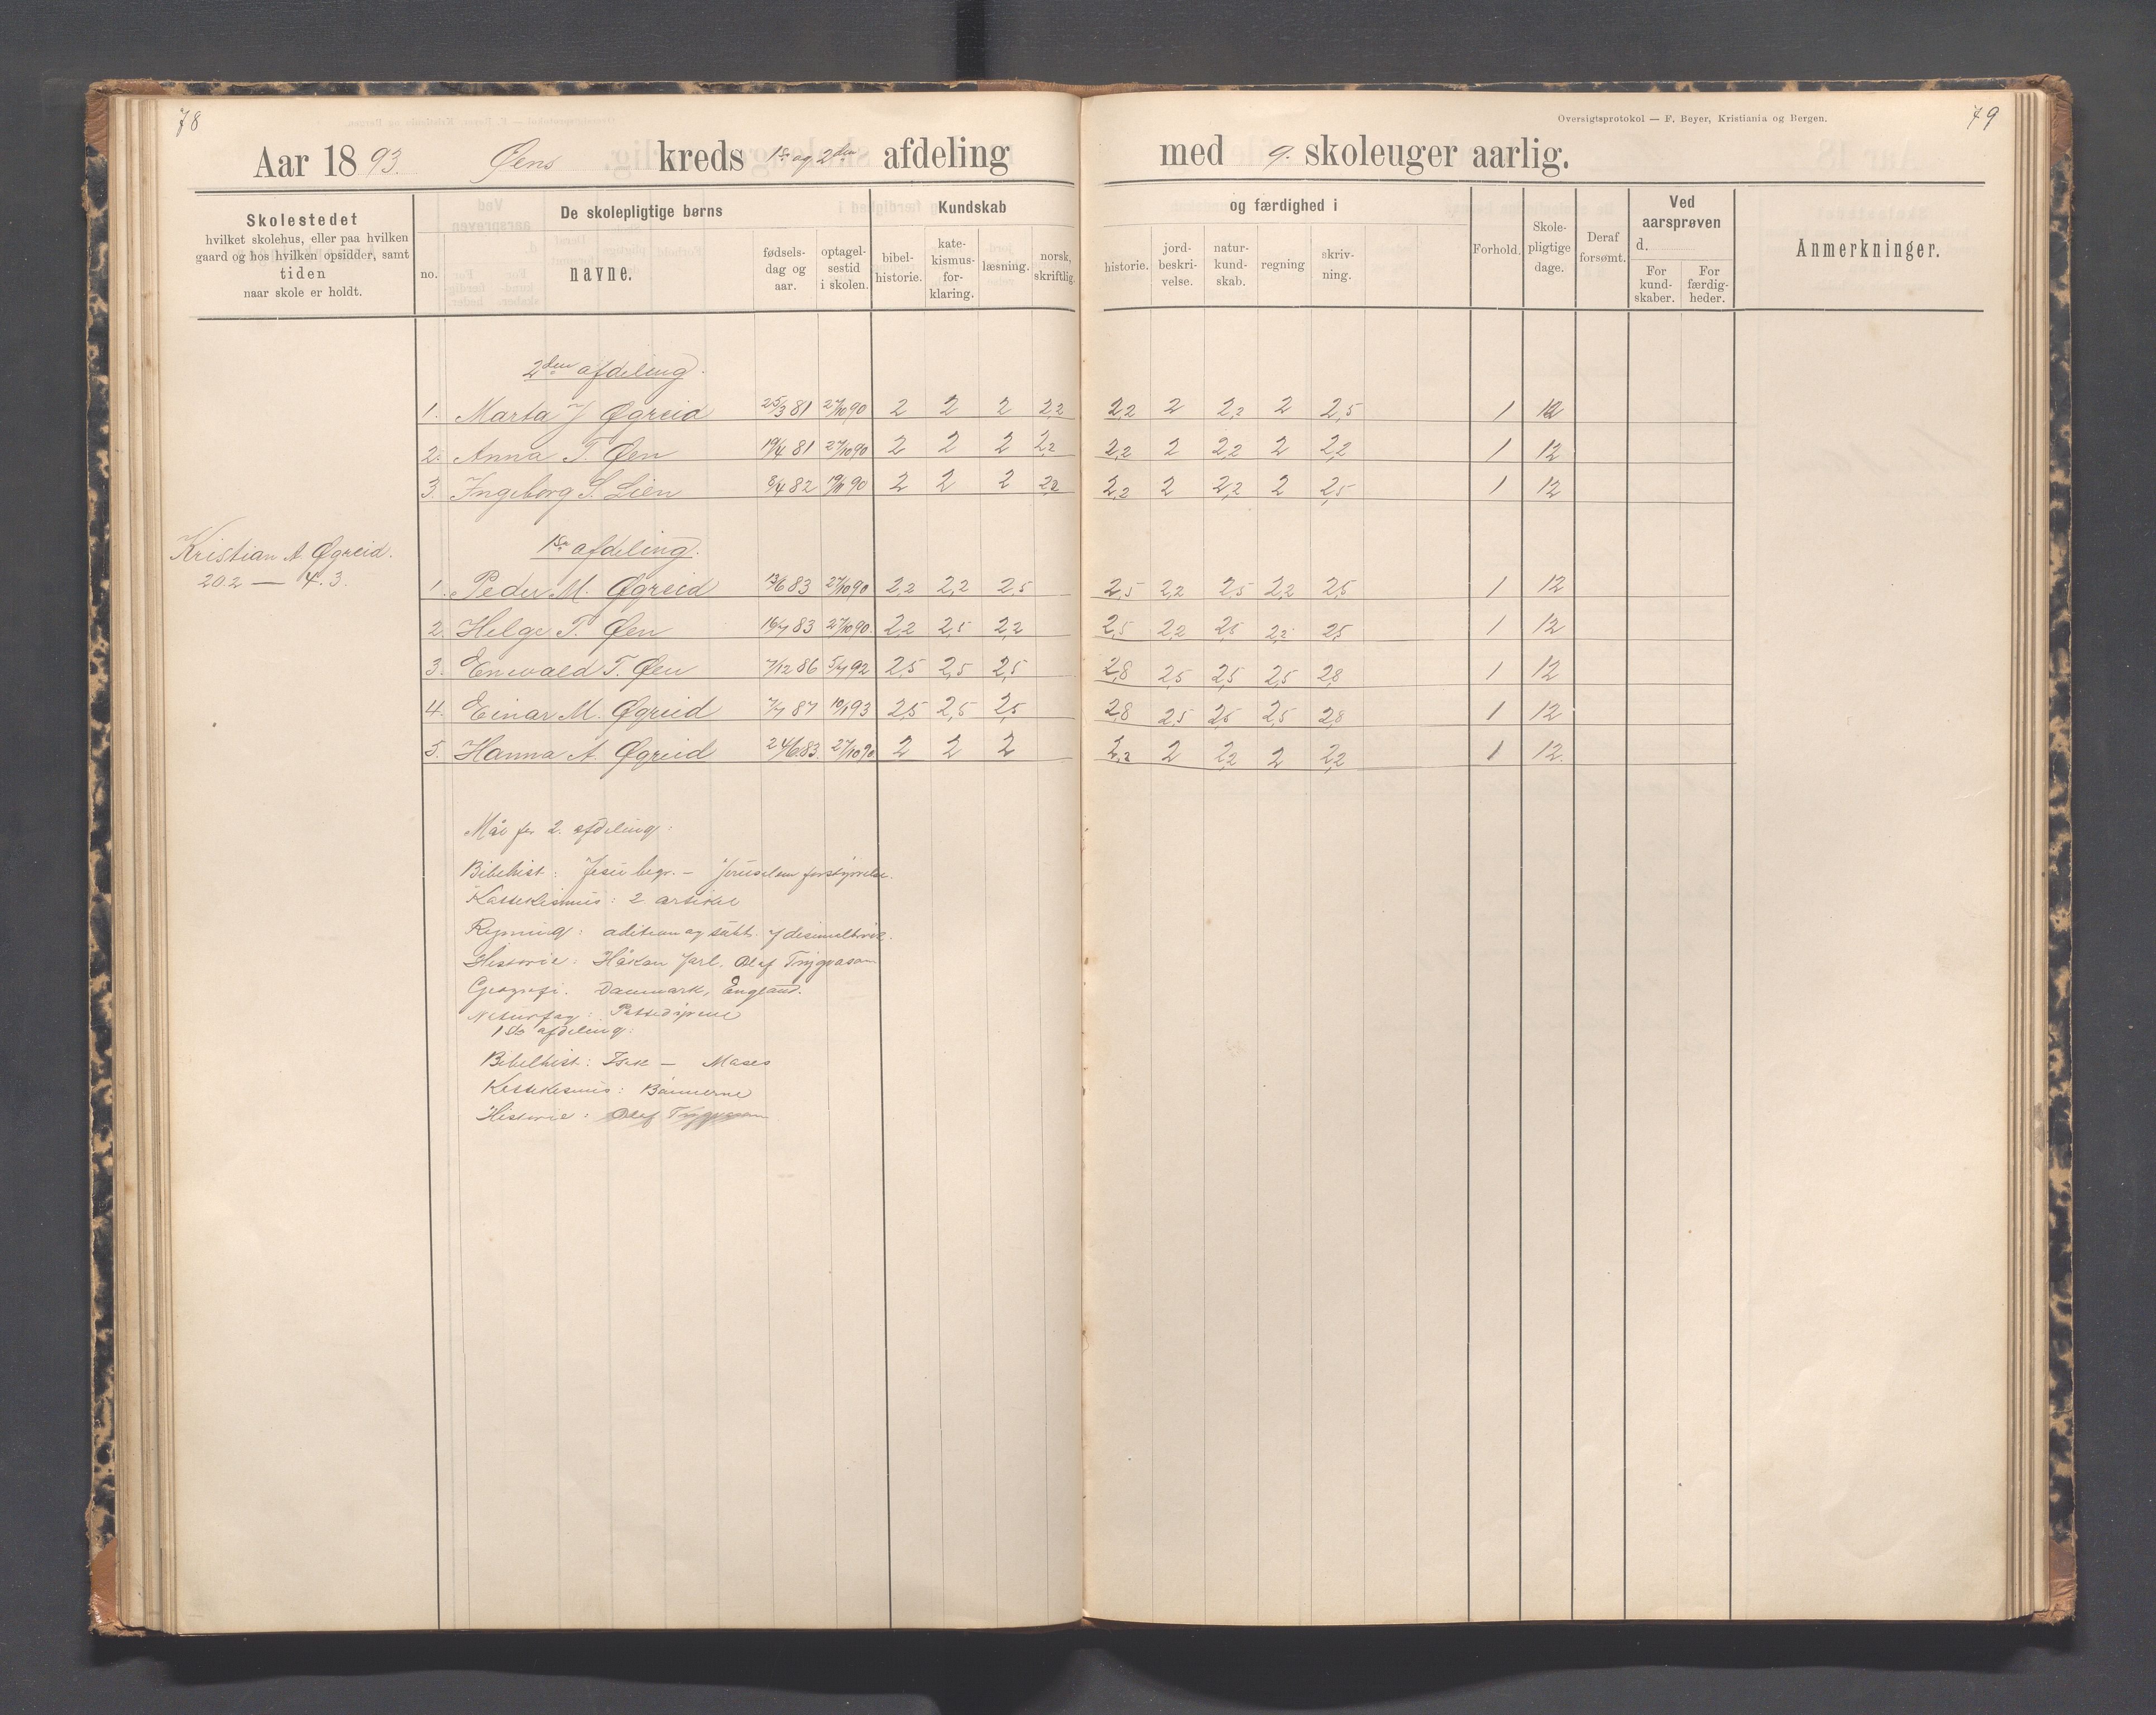 78
Oversigtsprotokol — F. Beyer, Kristiania og Bergen.
79
Aar 1893. Øens kreds 1ste og 2den afdeling med 9. skoleuger aarlig.
Skolestedet
hvilket skolehus, eller paa hvilken
gaard og hos hvilken opsidder, samt
tiden
naar skole er holdt.
De skolepligtige børns
no.
navne.
fødsels-
dag og
aar.
optagel-
sestid
i skolen.
Kundskab
bibel-
historie.
kate-
kismus-
for-
klaring.
læsning.
norsk,
skriftlig.
og færdighed i
historie.
jord-
beskri-
velse.
natur-
kund-
skab.
regning
skriv-
ning.
Forhold.
Skole-
pligtige
dage.
Deraf
forsømt.
Ved
aarsprøven
d.
For
kund-
skaber.
For
færdig-
heder.
Anmerkninger.
2den afdeling.
1. Marta J Øgreid 25/3 81 27/10 90 2 2 2 2,2 2,2 2 2,2 2 2,5 1 12
2. Anna T. Øen 19/4 81 27/10 90 2 2 2 2,2 2,2 2 2,2 2 2,2 1 12
3. Ingeborg S. Lien 8/4 82 90 2 2 2 2,2 2,2 2 2,2 2 2,5 1 12
Kristian A. Øgreid.
20.2 — 4.3.
1ste afdeling.
1. Peder M. Øgreid 13/6 83 27/10 90 2,2 2,2 2,5 2,5 2,2 2,5 2,2 2,5 1 12
2. Helge T. Øen 16/7 83 27/10 90. 2,2 2,5 2,2 2,5 2,2 2,5 2,2 2,5 1 12
3. Enwald T. Øen 7/12 86 5/7 92 2,5 2,5 2,5 2,8 2,5 2,5 2,5 2,8 1 12
4. Einar M. Øgreid 7/7 87 10/1 93 2,5 2,5 2,5 2,8 2,5 2,5 2,5 2,8 1 12
5. Hanna A. Øgreid 24/6 83. 27/10 90 2 2 2 2,2 2 2,2 2 2,2 1 12.
Mål for 2. afdeling:
Bibelhist: Jesu begr. — Jerusalem forstyrrelse.
Kattekismus: 2 artikel
Regning: adition og subt. i desimalbrøk.
Historie: Håkon Jarl. Olaf Trygvason
Geografi. Danmark, England.
Naturfag: Pattedyrene
1ste afdeling:
Bibelhist: Isak — Moses
Kattekismus: Bønnerne
Historie: Olaf Trygvason